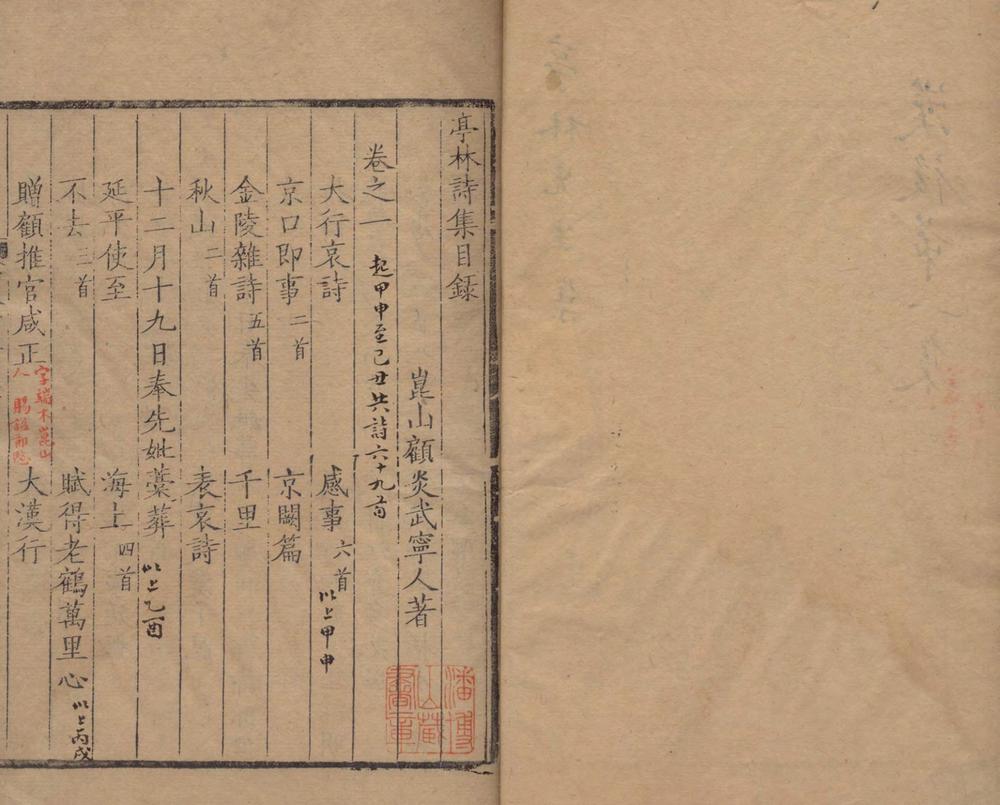 亭林詩集目錄
崑山顧炎武寧人著
卷之一 起甲申至己丑共詩六十九首
大行哀詩 感事六首 以上甲申
京口即事二首 京闕篇
金陵雜詩五首 千里
秋山二首 表哀詩
十二月十九日奉先妣藁葬 以上乙酉
延平使至 海上四首
不去三首 賦得老鶴萬里心 以上丙戌
贈顧推官咸正 字端木崑山人 大漢行
潘博山藏書章